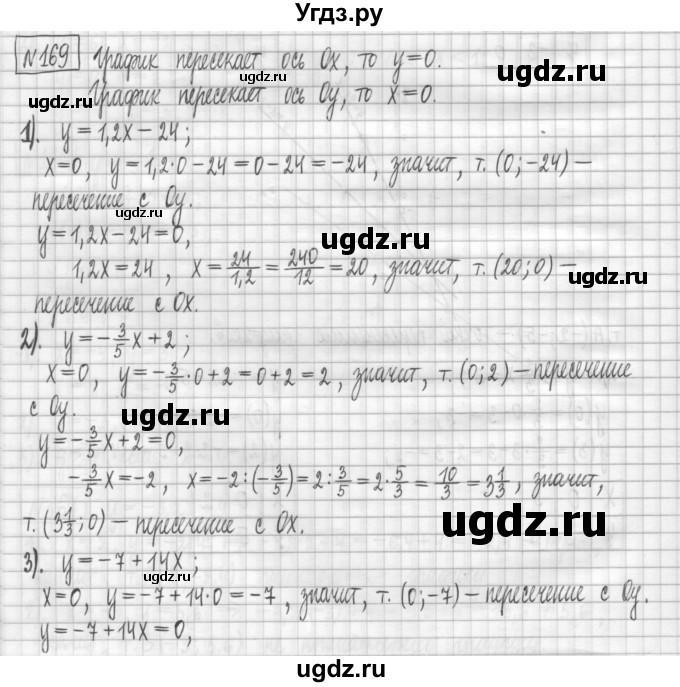 Угдз.ру
№169 График пересекает ось Ox, то y=0.
График пересекает ось Oy, то x=0.
1). y=1,2x-24;
x=0, y=1,2·0-24=0-24=-24, значит, т.(0;-24)-
пересечение с Oy.
y=1,2x-24=0,
1,2x=24, x=24/1,2=240/12=20, значит, т.(20;0)-
пересечение с Ox.
2). y=-3/5x+2;
x=0, y=-3/5·0+2=0+2=2, значит, т.(0;2)-пересечение
с Oy.
y=-3/5x+2=0,
-3/5x=-2, x=-2:(-3/5)=2:3/5=2·5/3=10/3=3 1/3, значит,
т.(3 1/3;0)-пересечение с Ox.
3). y=-7+14x;
x=0, y=-7+14·0=-7, значит, т.(0;-7)-пересечение с Oy.
y=-7+14x=0,
ugdz.ru
ugdz.ru
ugdz.ru
ugdz.ru
ugdz.ru
ugdz.ru
ugdz.ru
ugdz.ru
ugdz.ru
ugdz.ru
ugdz.ru
ugdz.ru
ugdz.ru